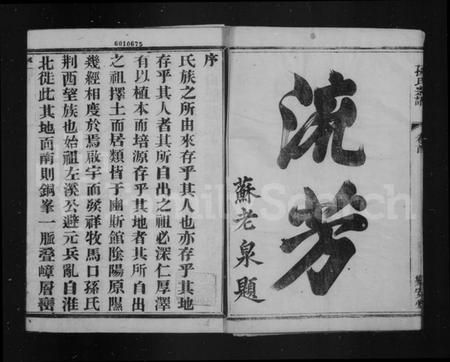 6010675
流芳
蘇老泉題
序
氏族之所由來存乎其人也亦存乎其地
存乎其人者其所自出之祖必深仁厚澤
有以植本而培源存乎其地者其所自出
之祖擇土而居類皆于豳斯館陰陽原隰
幾經相度於焉啟宇而發祥牧馬口孫氏
荆西望族也始祖左溪公避元兵亂自淮
北徙此其地面南則銅峯一脈疊嶂層巒
孫氏宗譜